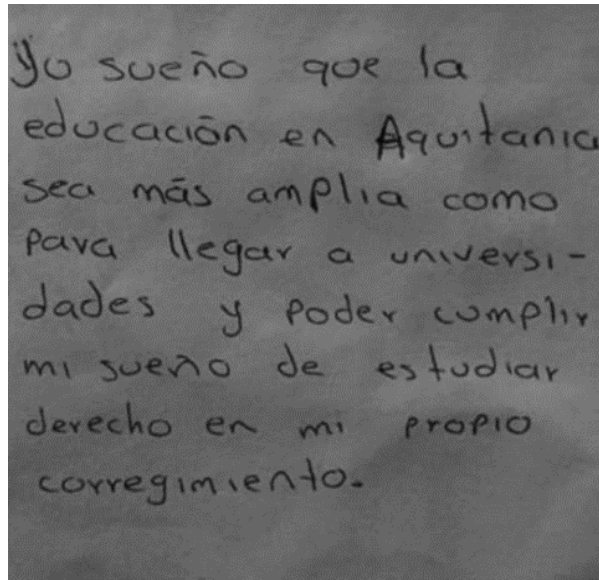 Yo sueño que la
educación en Aquitania
sea más amplia como
para llegar a universi-
dades y poder cumplir
mi sueño de estudiar
derecho en mi propio
corregimiento.